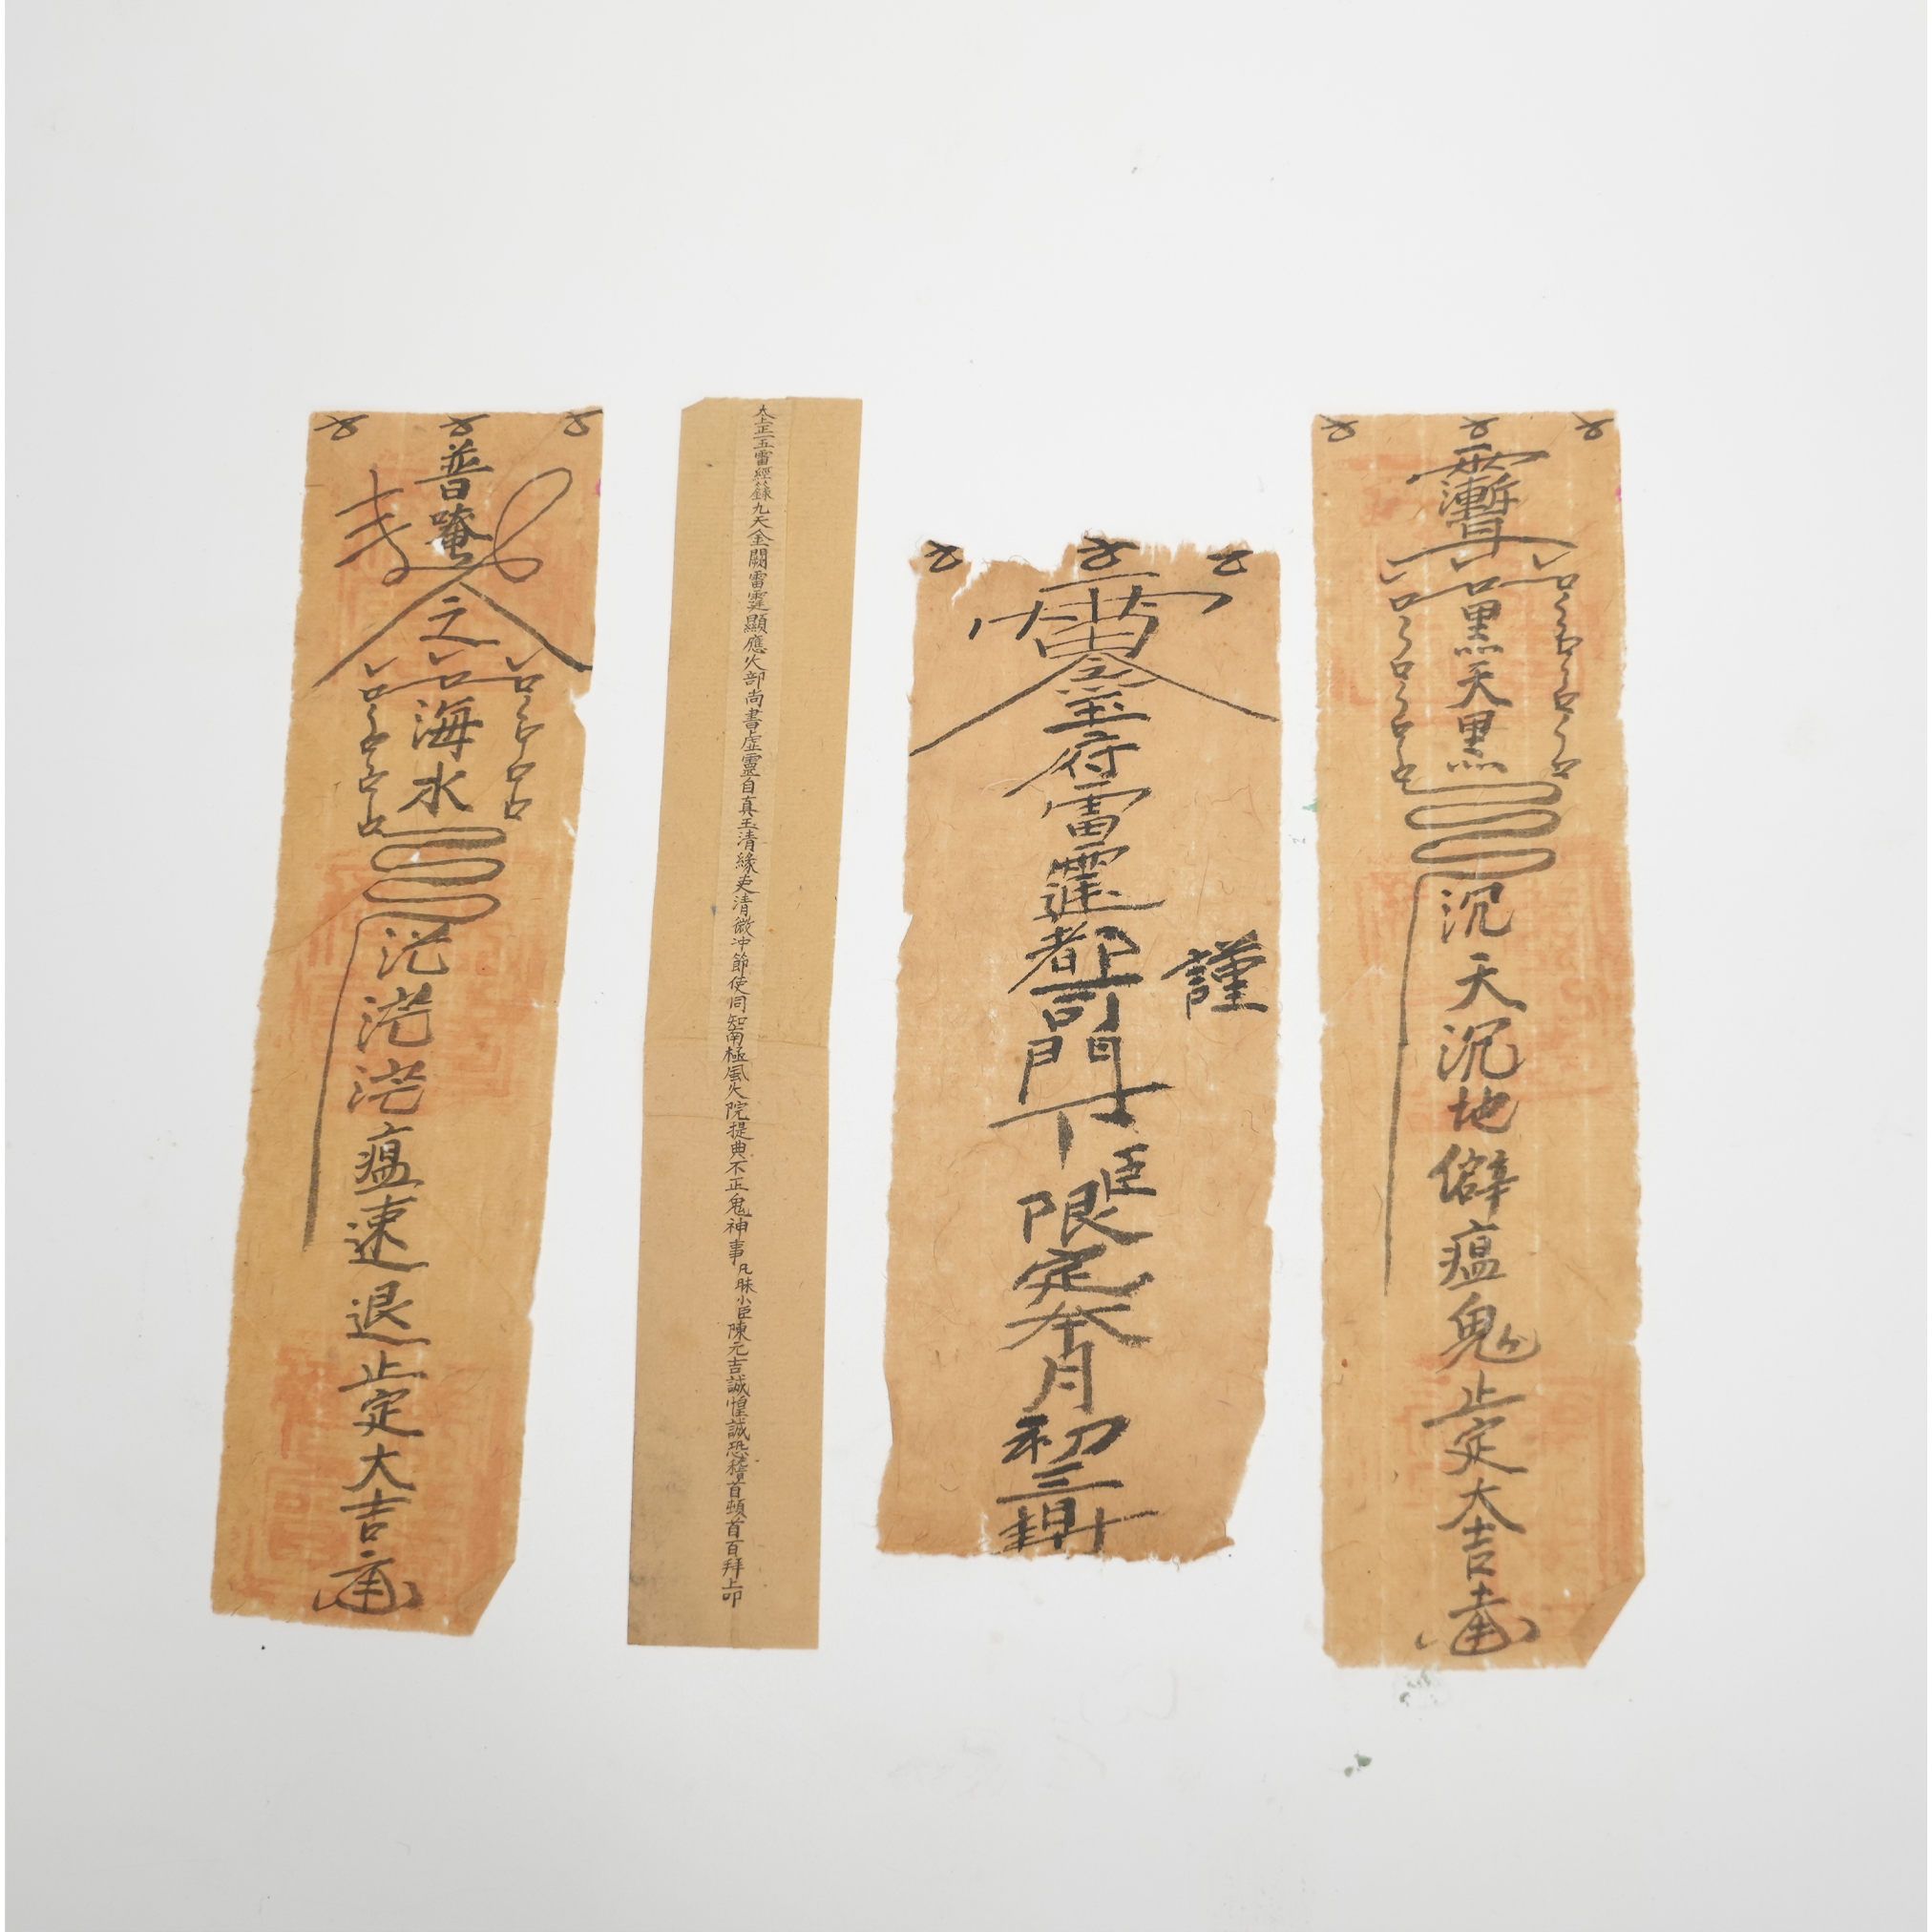 漸耳
黑天黑
沉天沉地僻瘟鬼止定大吉
雷令
玉府雷霆都司門下臣限定本月初三
謹
太上正一五雷經籙九天金闕雷霆顯應火部尚書虛靈自真玉清緣吏清微冲節使同知南極風火院提典不正鬼神事凡昧小臣陳元吉誠惶誠恐稽首頓首百拜上叩
普唵
之
海水
茫茫茫瘟速退止定大吉